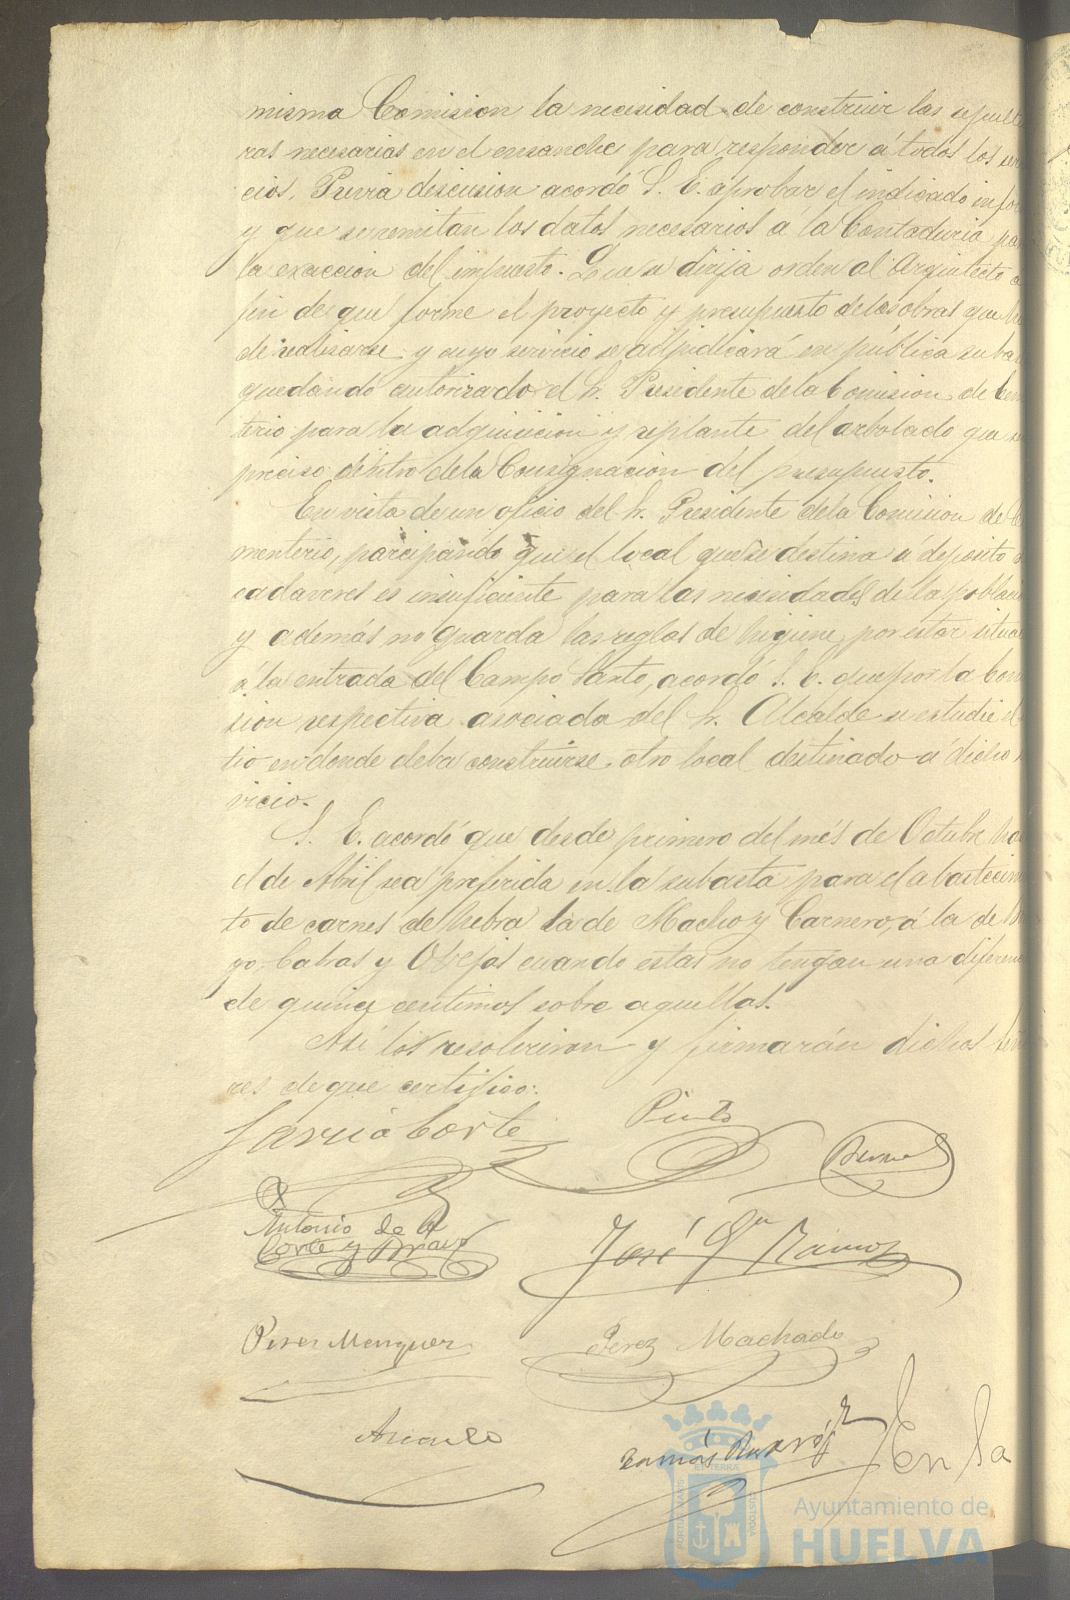 misma Comision la necesidad de construir las sepult
ras necesarias en el ensanche para responder á todos los ser
cios. Previa discusion acordó S. E. aprobar el indicado infor
y que se remitan los datos necesarios á la Contaduria pa
la exaccion del impuesto. Que se dirija orden al Arquitecto a
fin de que forme el proyecto y presupuesto de las obras que
de realizarse y cuyo servicio se adjudicará en pública suba
quedando autorizado el Sr. Presidente de la Comision de Cem
terio para la adquisicion y replante del arbolado que
preciso dentro de la Consignacion del presupuesto.
En vista de un oficio del Sr. Presidente de la Comision de Ce
menterio, parcipando que el local que se destina á deposito
cadaveres es insuficiente para las necesidades de la poblaci
y además no guarda las reglas de higiene por estar situa
á la entrada del Campo Santo, acordó S. E. que por la Comi
sion respectiva asociada del Sr. Alcalde se estudie el
tio en donde deba construirse otro local destinado á dicho
vicio.
S. E. acordó que desde primero del més de Octubre ha
el de Abril sea preferida en la subasta para el abastecim
to de carnes de hebra la de Macho y Carnero, á la de
yo Cabras y Obejas cuando estas no tengan una diferen
de quince centimos sobre aquellas.
Así los resolvieron y firmarán dichos Señ
res de que certifico.
Garcia Corte
Pinto
Bernal
Antonio de la
Corte y Bravo
José Gn Ramos
Perez Menguer
Perez Machado
Tomás
En la
Ayuntamiento de
HUELVA